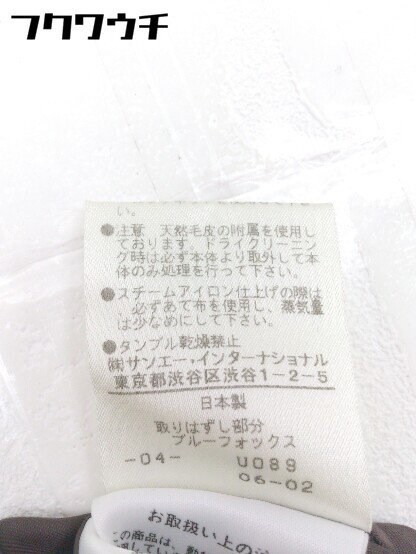 フクワウチ
い。
●注意 天然毛皮の附属を使用し
ております。ドライクリーニン
グ時は必ず本体より取外して本
体のみ処理を行って下さい。
●スチームアイロン仕上げの際は
必ずあて布を使用し、蒸気量
は少なめにして下さい。
●タンブル乾燥禁止
㈱サンエー・インターナショナル
東京都渋谷区渋谷1-2-5
日本製
取りはずし部分
ブルーフォックス
-04- U089
06-02
お取扱い上の
この商品は、動